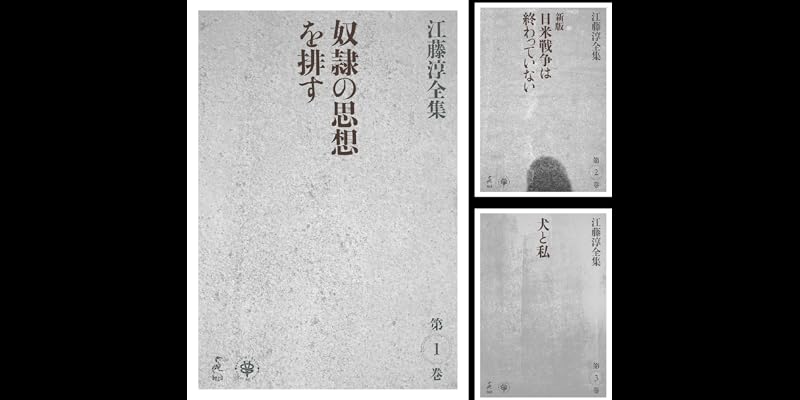 江藤淳全集
奴隷の思想
を排す
第
1
巻
江藤淳全集
新版
日米戦争は
終わっていない
第
2
巻
江藤淳全集
犬と私
第
3
巻